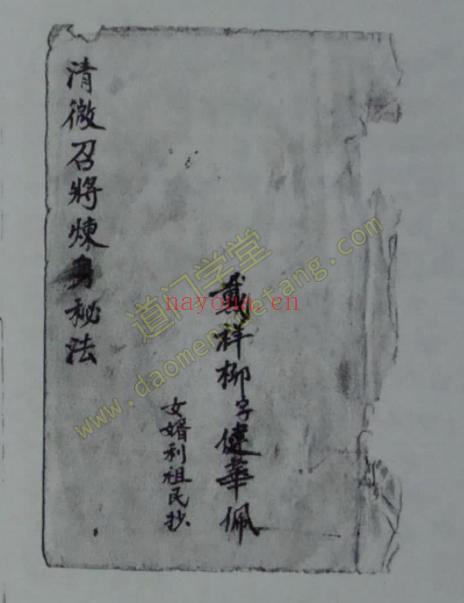 清微召將煉身秘法
戴祥柳字健華佩
女婿利祖民抄
道门学堂
nayona.cn
www.daomenxuetang.com